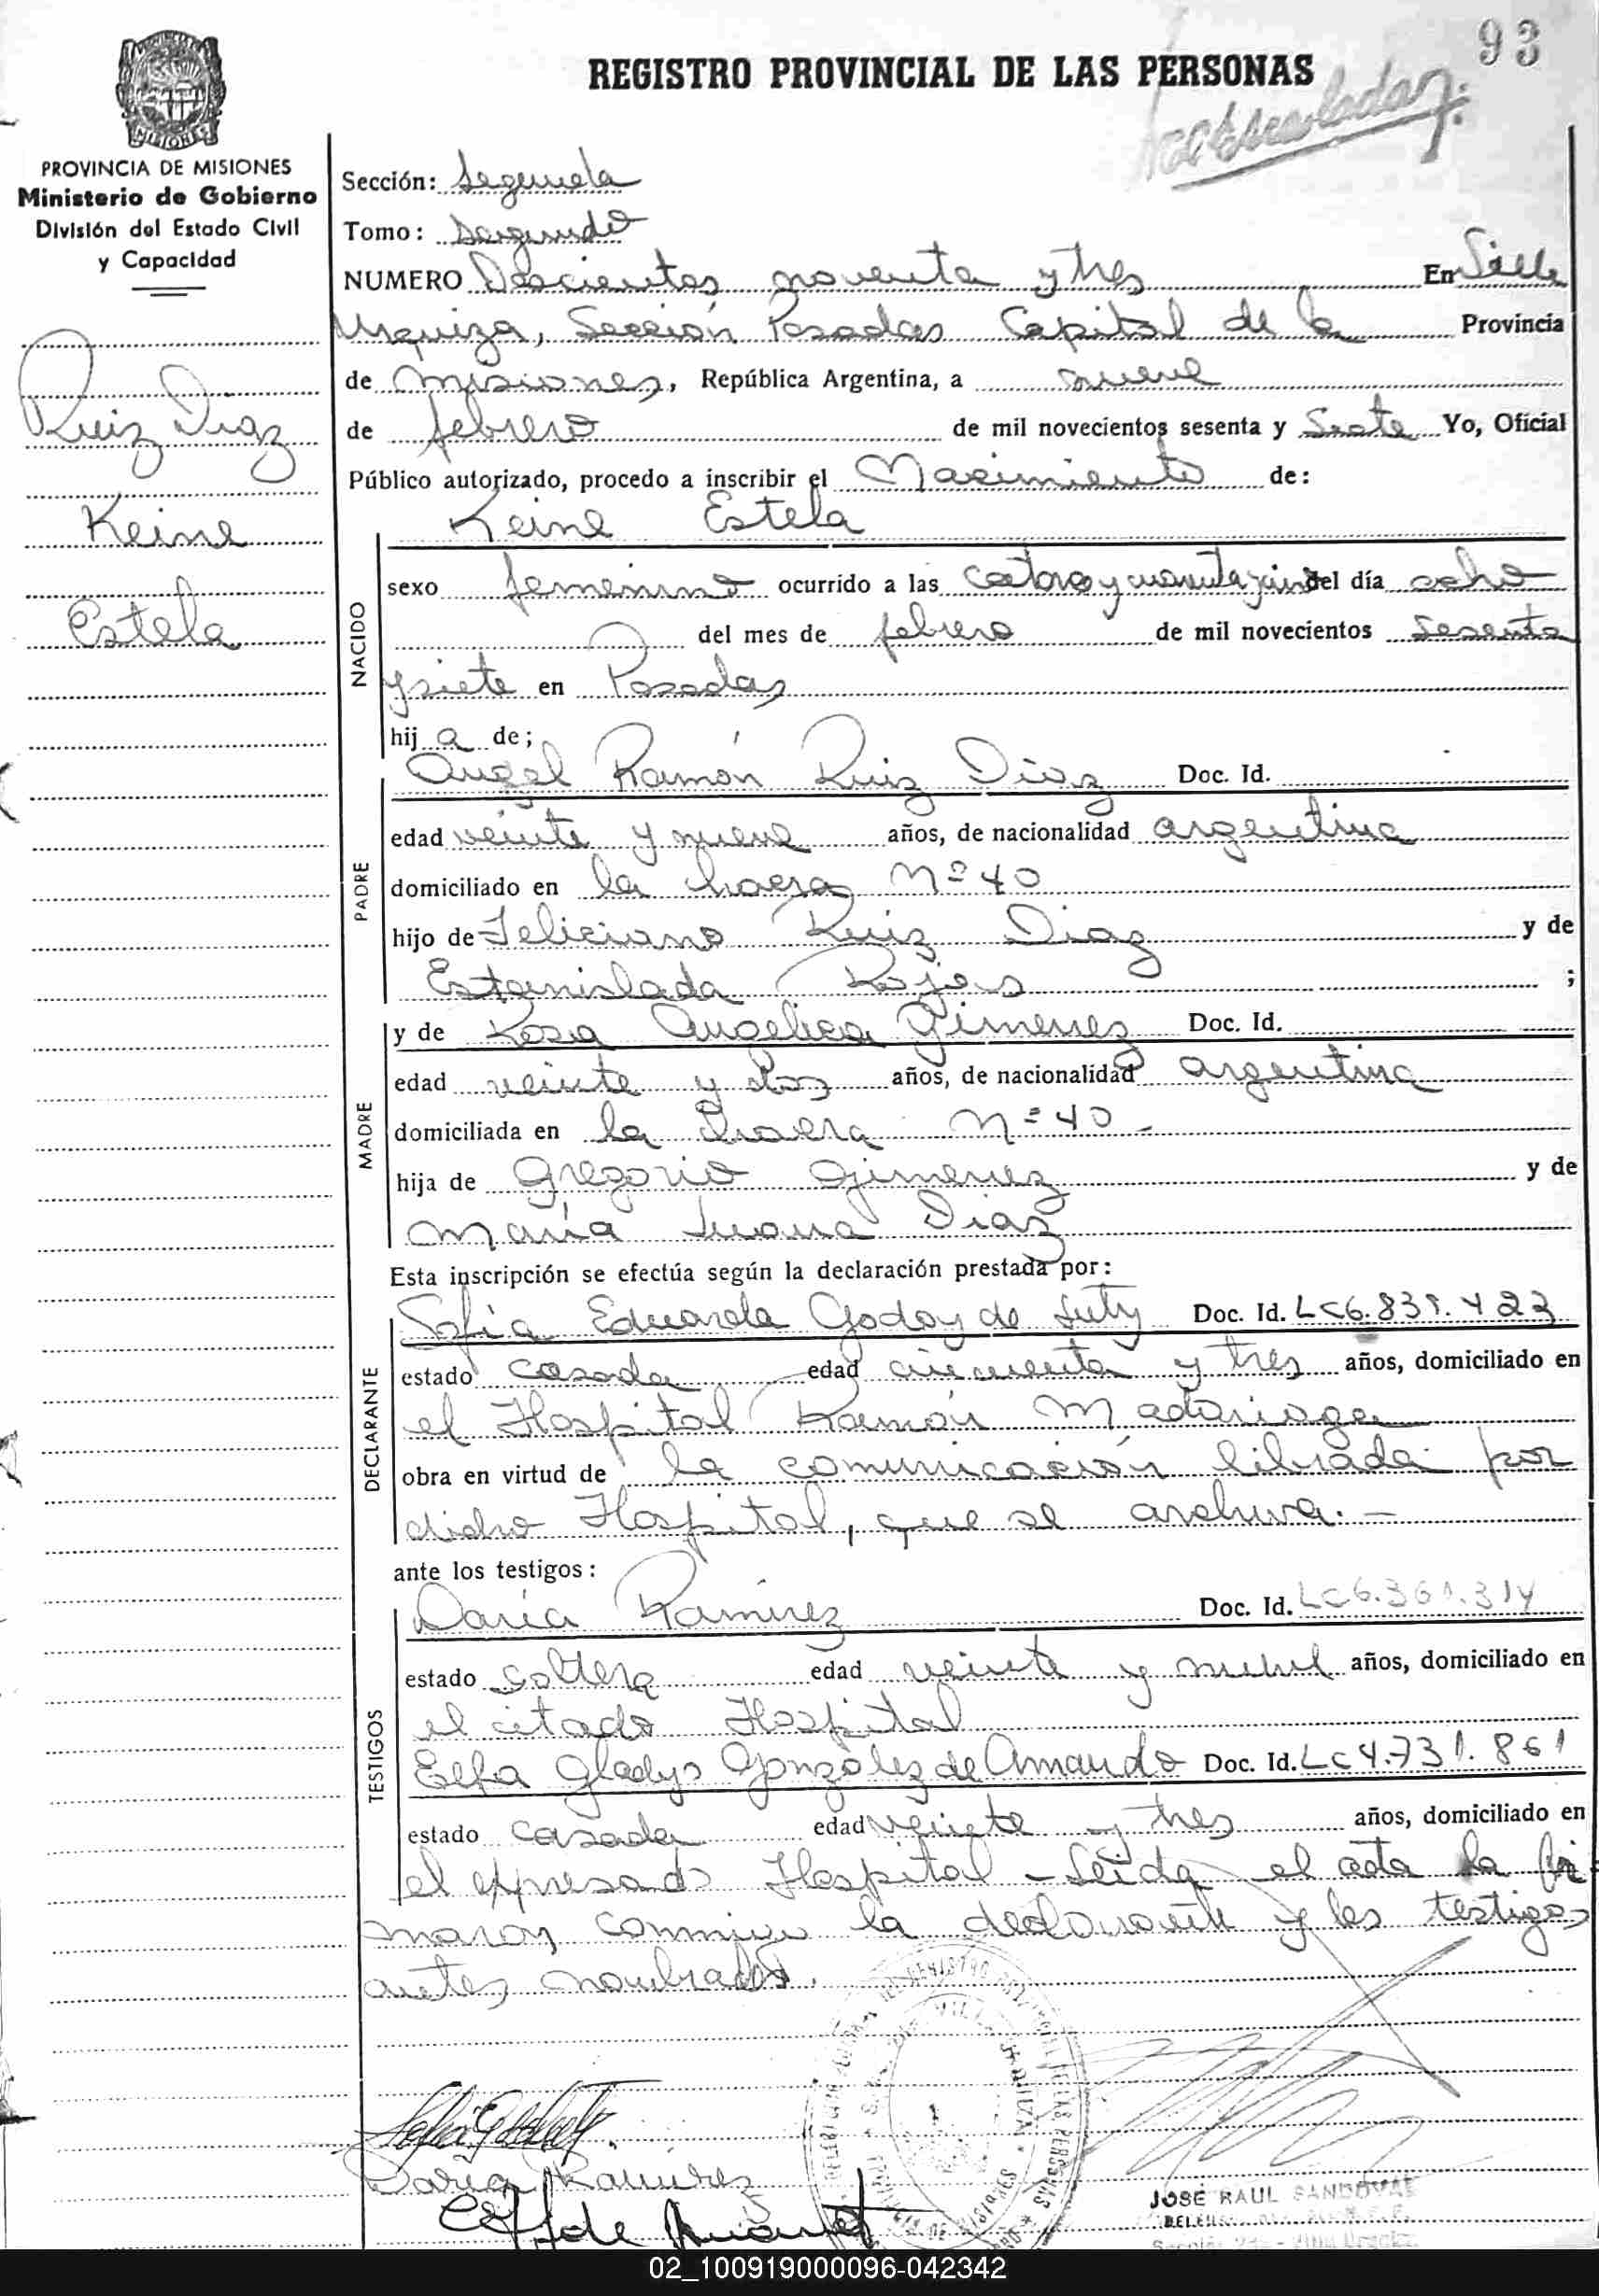 93
REGISTRO PROVINCIAL DE LAS PERSONAS
MISIONES
PROVINCIA DE MISIONES
Ministerio de Gobierno
División del Estado Civil
y Capacidad
Ruiz Diaz
Keine
Estela
Sección: Segunda
Tomo: Segundo
NUMERO Doscientos noventa y tres En Villa
Urquiza, Sección Posadas Capital de la Provincia
de Misiones, República Argentina, a nueve
de febrero de mil novecientos sesenta y Siete Yo, Oficial
Público autorizado, procedo a inscribir el Nacimiento de:
Keine Estela
NACIDO
sexo femenino ocurrido a las catorce y cuarenta y cinco del día ocho
del mes de febrero de mil novecientos sesenta
y siete en Posadas
hij a de;
PADRE
Angel Ramón Ruiz Diaz Doc. Id.
edad veinte y nueve años, de nacionalidad argentina
domiciliado en la chacra Nº 40
hijo de Feliciano Ruiz Diaz y de
Estanislada Rojas ;
MADRE
y de Rosa Angelica Gimenez Doc. Id.
edad veinte y dos años, de nacionalidad argentina
domiciliada en la chacra Nº 40 -
hija de Gregorio Gimenez y de
María Juana Diaz
Esta inscripción se efectúa según la declaración prestada por:
DECLARANTE
Sofía Eduarda Godoy de Doc. Id. LC 6.838.423
estado casada edad cincuenta y tres años, domiciliado en
el Hospital Ramón Madariaga
obra en virtud de la comunicación librada por
dicho Hospital, que se archiva. -
ante los testigos:
TESTIGOS
Daría Ramírez Doc. Id. LC 6.361.314
estado soltera edad veinte y nueve años, domiciliado en
el citado Hospital
Elfa Gladys Gonzalez de Amando Doc. Id. LC 4.731.861
estado casada edad veinte y tres años, domiciliado en
el expresado Hospital - Leida el acta la fir
maron conmigo la declarante y los testigos
antes nombrados.
Daría Ramírez
JOSE RAUL SANDOVAL
02_100919000096-042342